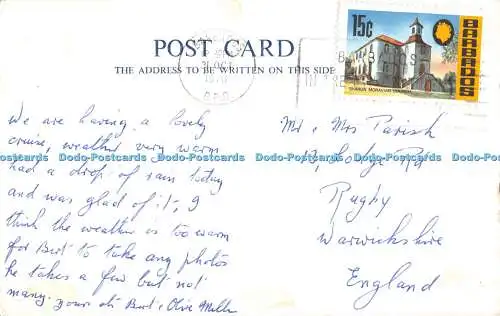 15c
BARBADOS
SHARON MORAVIAN CHURCH
BARBADOS
G.P.O.
POST CARD
THE ADDRESS TO BE WRITTEN ON THIS SIDE
We are having a lovely
cruise, weather very warm
Dodo-Postcards Dodo-Postcards Dodo-Postcards Dodo-Postcards Dodo-Postcards
had a drop of rain today
and was glad of it, I
think the weather is too warm
for Bert to take any photos
he takes a few but not
many. yours etc Bert & Olive
Mr & Mrs Parish
Rd
Rugby
Warwickshire
England